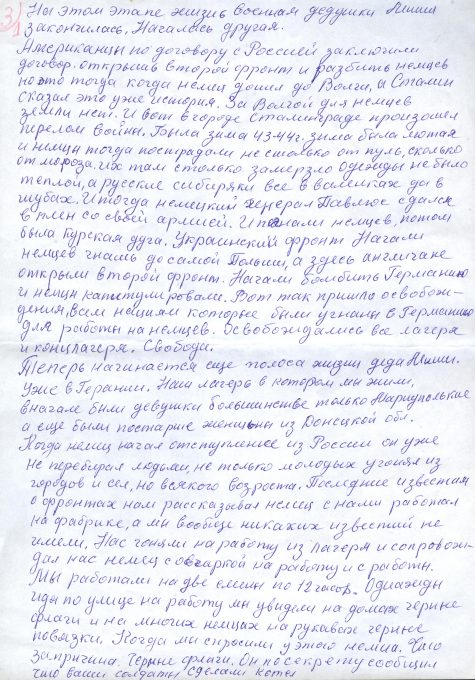 3) На этом этапе жизнь военная дедушки Миши
закончилась, Началась другая.
Американцы по договору с Россией заключили
договор. открыть второй фронт и разбить немцев
но это тогда когда немец дошел до Волги, а Сталин
сказал это уже история. За Волгой для немцев
земли нет. И вот в городе Сталинграде произошел
перелом войны. Была зима 43-44г. зима была лютая
и немцы тогда пострадали не столько от пуль, сколько
от мороза. их там столько замерзло одежды не было
теплой, а русские сибиряки все в валенках да в
шубах. И тогда немецкий генерал Павлюс сдался
в плен со своей армией. И погнали немцев, потом
была Курская дуга. Украинский фронт Начали
немцев гнать до самой Польши, а здесь англичане
открыли второй фронт. Начали бомбить Германию
и немцы капитулировали. Вот так пришло освобож-
дения, всем нациям которые были угнаты в Германию
для работы на немцев. Освобождались все лагеря
и концлагеря. Свобода.
Теперь начинается еще полоса жизни деда Миши.
Уже в Герании. Наш лагерь в котором мы жили,
вначале были девушки большинстве только Мариупольские
а еще были постарше женщины из Донецкой обл.
Когда немец начал отступление из России он уже
не перебирал людьми, не только молодых угонял из
городов и сел, но всякого возроста. Последние известия
о фронтах нам рассказывал немец с нами работал
на фабрике, а мы вообще никаких известий не
имели. Нас гоняли на работу из лагеря и сопровож-
дал нас немец с овчаркой на работу и с работы.
Мы работали на две смены по 12 часов. Однажды
иды по улице на работу мы увидели на домах черные
флаги и на многих немцах на рукавах черные
повязки. Когда мы спросили у этого немца. Что
за причина. Черные флаги. Он по секрету сообщил
что ваши солдаты сделали котел